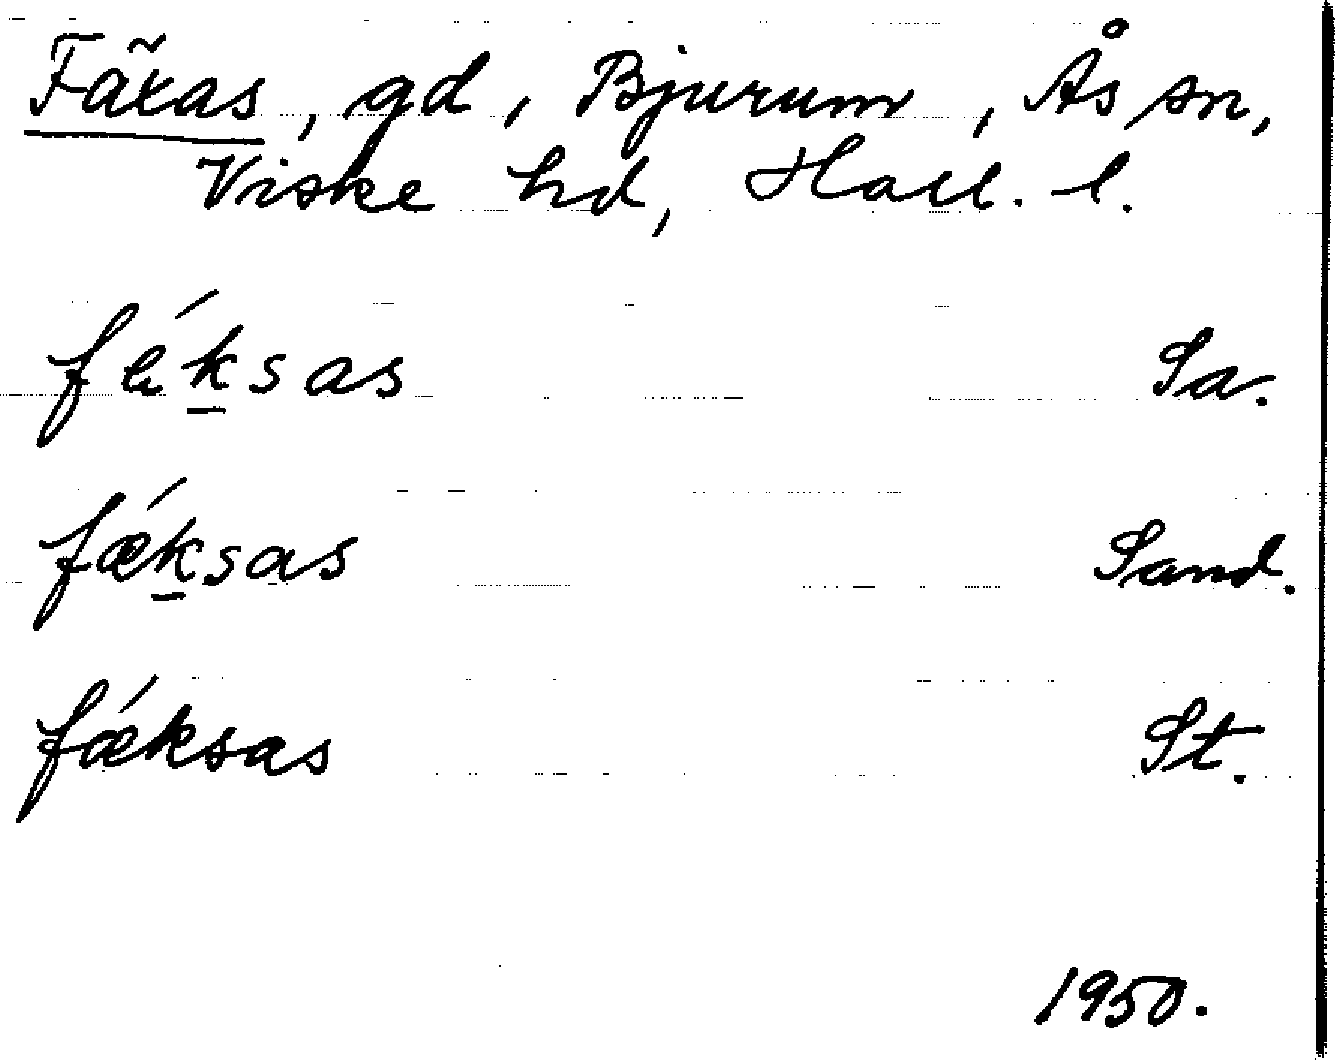 Fäxas, gd, Bjurum, Ås sn,
Viske hd, Hall. l.
fé̢k̲sas Sa.
fǽk̲sas Sand.
fǽksas St.
1950.